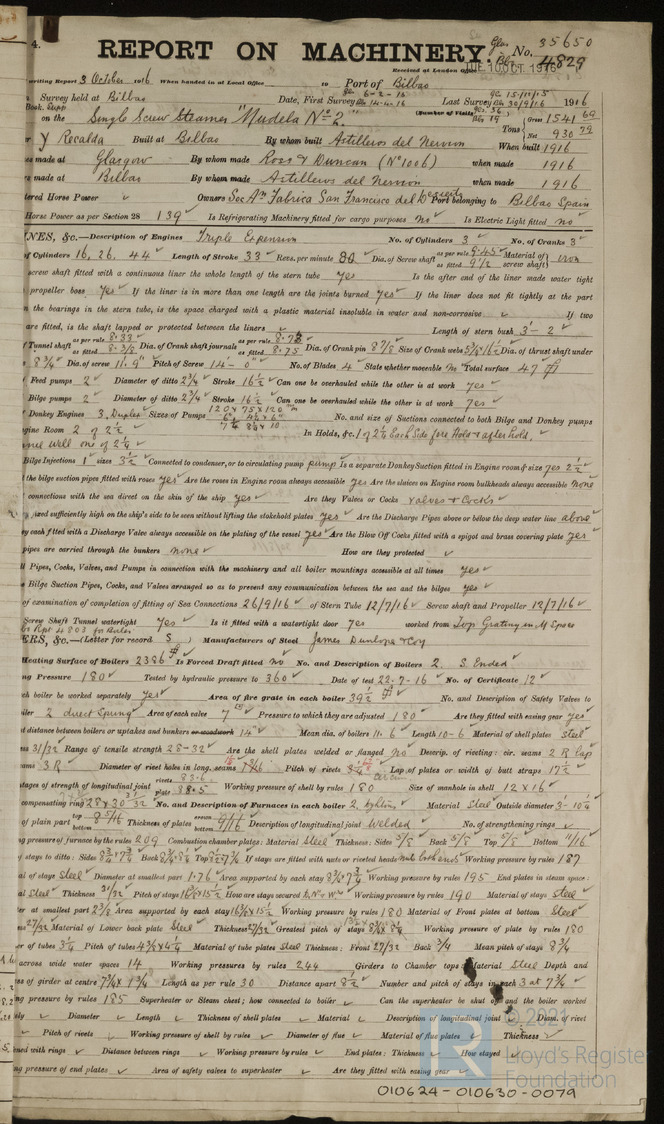 4.
REPORT ON MACHINERY.
Gls. No. 35650
Blb. 4829
Received at London Office TUE. 10 OCT. 1916
writing Report 3 October 1916 When handed in at Local Office to Port of Bilbao
Survey held at Bilbao Date, First Survey Last Survey 30/9/16 1916
Book. on the Single Screw Steamer "Mudela No 2." (Number of Visits)
Gross 1541 69
Tons Net 930 79
Recalda Built at Bilbao By whom built Astilleros del Nervion When built 1916
es made at Glasgow By whom made Ross & Duncan (No 1006) when made 1916
rs made at Bilbao By whom made Astilleros del Nervion when made 1916
tered Horse Power Owners Soc Am Fabrica San Francisco del Desierto Port belonging to Bilbao Spain
Horse Power as per Section 28 139 Is Refrigerating Machinery fitted for cargo purposes no Is Electric Light fitted no
NES, &c.—Description of Engines Triple Expansion No. of Cylinders 3 No. of Cranks 3
of Cylinders 16, 26, 44 Length of Stroke 33 Revs. per minute 80 Dia. of Screw shaft as per rule 9.45 as fitted 9 1/2 Material of screw shaft Iron
screw shaft fitted with a continuous liner the whole length of the stern tube yes Is the after end of the liner made water tight
propeller boss yes If the liner is in more than one length are the joints burned yes If the liner does not fit tightly at the part
n the bearings in the stern tube, is the space charged with a plastic material insoluble in water and non-corrosive If two
are fitted, is the shaft lapped or protected between the liners Length of stern bush 3'-2"
Tunnel shaft as per rule 8.33 as fitted 8 3/8 Dia. of Crank shaft journals as per rule 8.75 as fitted 8.75 Dia. of Crank pin 8 7/8 Size of Crank webs Dia. of thrust shaft under
8 3/4 Dia. of screw 11'.9" Pitch of Screw 14'-0" No. of Blades 4 State whether moveable no Total surface 47
Feed pumps 2 Diameter of ditto 2 3/4 Stroke 16 1/2 Can one be overhauled while the other is at work yes
Bilge pumps 2 Diameter of ditto 2 3/4 Stroke 16 1/2 Can one be overhauled while the other is at work yes
Donkey Engines 3 Duplex Sizes of Pumps 120 x 75 x 120 No. and size of Suctions connected to both Bilge and Donkey pumps
gine Room 2 of 2 1/2 In Holds, &c. 1 of 2 1/2 Each Side fore Hold & after hold.
nel well one of 2 1/2
Bilge Injections 1 sizes 3 1/2 Connected to condenser, or to circulating pump pump Is a separate Donkey Suction fitted in Engine room & size yes 2 1/2
l the bilge suction pipes fitted with roses yes Are the roses in Engine room always accessible yes Are the sluices on Engine room bulkheads always accessible none
connections with the sea direct on the skin of the ship yes Are they Valves or Cocks Valves & Cocks
ixed sufficiently high on the ship's side to be seen without lifting the stokehold plates yes Are the Discharge Pipes above or below the deep water line above
y each fitted with a Discharge Valve always accessible on the plating of the vessel yes Are the Blow Off Cocks fitted with a spigot and brass covering plate yes
pipes are carried through the bunkers none How are they protected
l Pipes, Cocks, Valves, and Pumps in connection with the machinery and all boiler mountings accessible at all times yes
Bilge Suction Pipes, Cocks, and Valves arranged so as to prevent any communication between the sea and the bilges yes
of examination of completion of fitting of Sea Connections 26/9/16 of Stern Tube 12/7/16 Screw shaft and Propeller 12/7/16
Screw Shaft Tunnel watertight yes Is it fitted with a watertight door yes worked from Top Grating in M Space
Rpt 4803 for Boiler
ERS, &c.—(Letter for record S) Manufacturers of Steel James Dunlop & Coy
Heating Surface of Boilers 2386 Is Forced Draft fitted no No. and Description of Boilers 2. S. Ended
ng Pressure 180 Tested by hydraulic pressure to 360 Date of test 22.7.16 No. of Certificate 12
ch boiler be worked separately yes Area of fire grate in each boiler 39 1/2 No. and Description of Safety Valves to
iler 2 direct Spring Area of each valve 7 Pressure to which they are adjusted 180 Are they fitted with easing gear yes
t distance between boilers or uptakes and bunkers or woodwork 14" Mean dia. of boilers 11.6 Length 10-6 Material of shell plates Steel
ss 31/32 Range of tensile strength 28-32 Are the shell plates welded or flanged no Descrip. of riveting: cir. seams 2 R lap
ams 3 R Diameter of rivet holes in long. seams Pitch of rivets Lap of plates or width of butt straps 17 1/2
tages of strength of longitudinal joint rivets 83.6 plate 88.5 Working pressure of shell by rules 180 Size of manhole in shell 12 x 16
compensating ring 28 x 30 No. and Description of Furnaces in each boiler 2, Material Steel Outside diameter 3-10 1/4
of plain part top bottom Thickness of plates crown bottom 9/16 Description of longitudinal joint Welded No. of strengthening rings
ng pressure of furnace by the rules 209 Combustion chamber plates: Material Steel Thickness: Sides 5/8 Back 5/8 Top 5/8 Bottom 11/16
of stays to ditto: Sides 8 3/4 x 7 3/4 Back 8 3/4 x 8 1/4 Top If stays are fitted with nuts or riveted heads nuts both ends Working pressure by rules 187
al of stays Steel Diameter at smallest part 1.76 Area supported by each stay 8 3/4 x 7 3/4 Working pressure by rules 195 End plates in steam space:
al Steel Thickness 31/32 Pitch of stays 16 3/8 x 15 1/2 How are stays secured Working pressure by rules 190 Material of stays Steel
er at smallest part 2 3/8 Area supported by each stay 16 3/8 x 15 1/2 Working pressure by rules 180 Material of Front plates at bottom Steel
ess 27/32 Material of Lower back plate Steel Thickness 27/32 Greatest pitch of stays Working pressure of plate by rules 180
er of tubes 3 1/4 Pitch of tubes 4 3/8 x 4 1/4 Material of tube plates Steel Thickness: Front 27/32 Back 3/4 Mean pitch of stays 8 3/4
across wide water spaces 14 Working pressures by rules 244 Girders to Chamber tops: Material Steel Depth and
ss of girder at centre 7 3/4 x 1 3/4 Length as per rule 30 Distance apart 8 1/2 Number and pitch of stays in each 3 at 7 3/4
ng pressure by rules 185 Superheater or Steam chest; how connected to boiler Can the superheater be shut off and the boiler worked
ly Diameter Length Thickness of shell plates Material Description of longitudinal joint Diam. of rivet
Pitch of rivets Working pressure of shell by rules Diameter of flue Material of flue plates Thickness
ned with rings Distance between rings Working pressure by rules End plates: Thickness How stayed
ng pressure of end plates Area of safety valves to superheater Are they fitted with easing gear
© 2021
Lloyd's Register
Foundation
010624-010630-0079